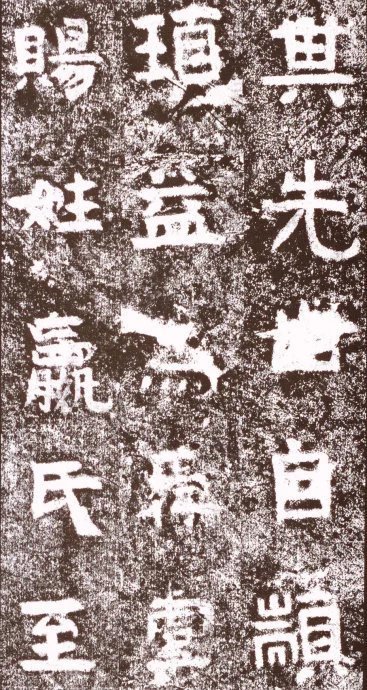 其先世自顓
頊益為舜虞
賜姓嬴氏至